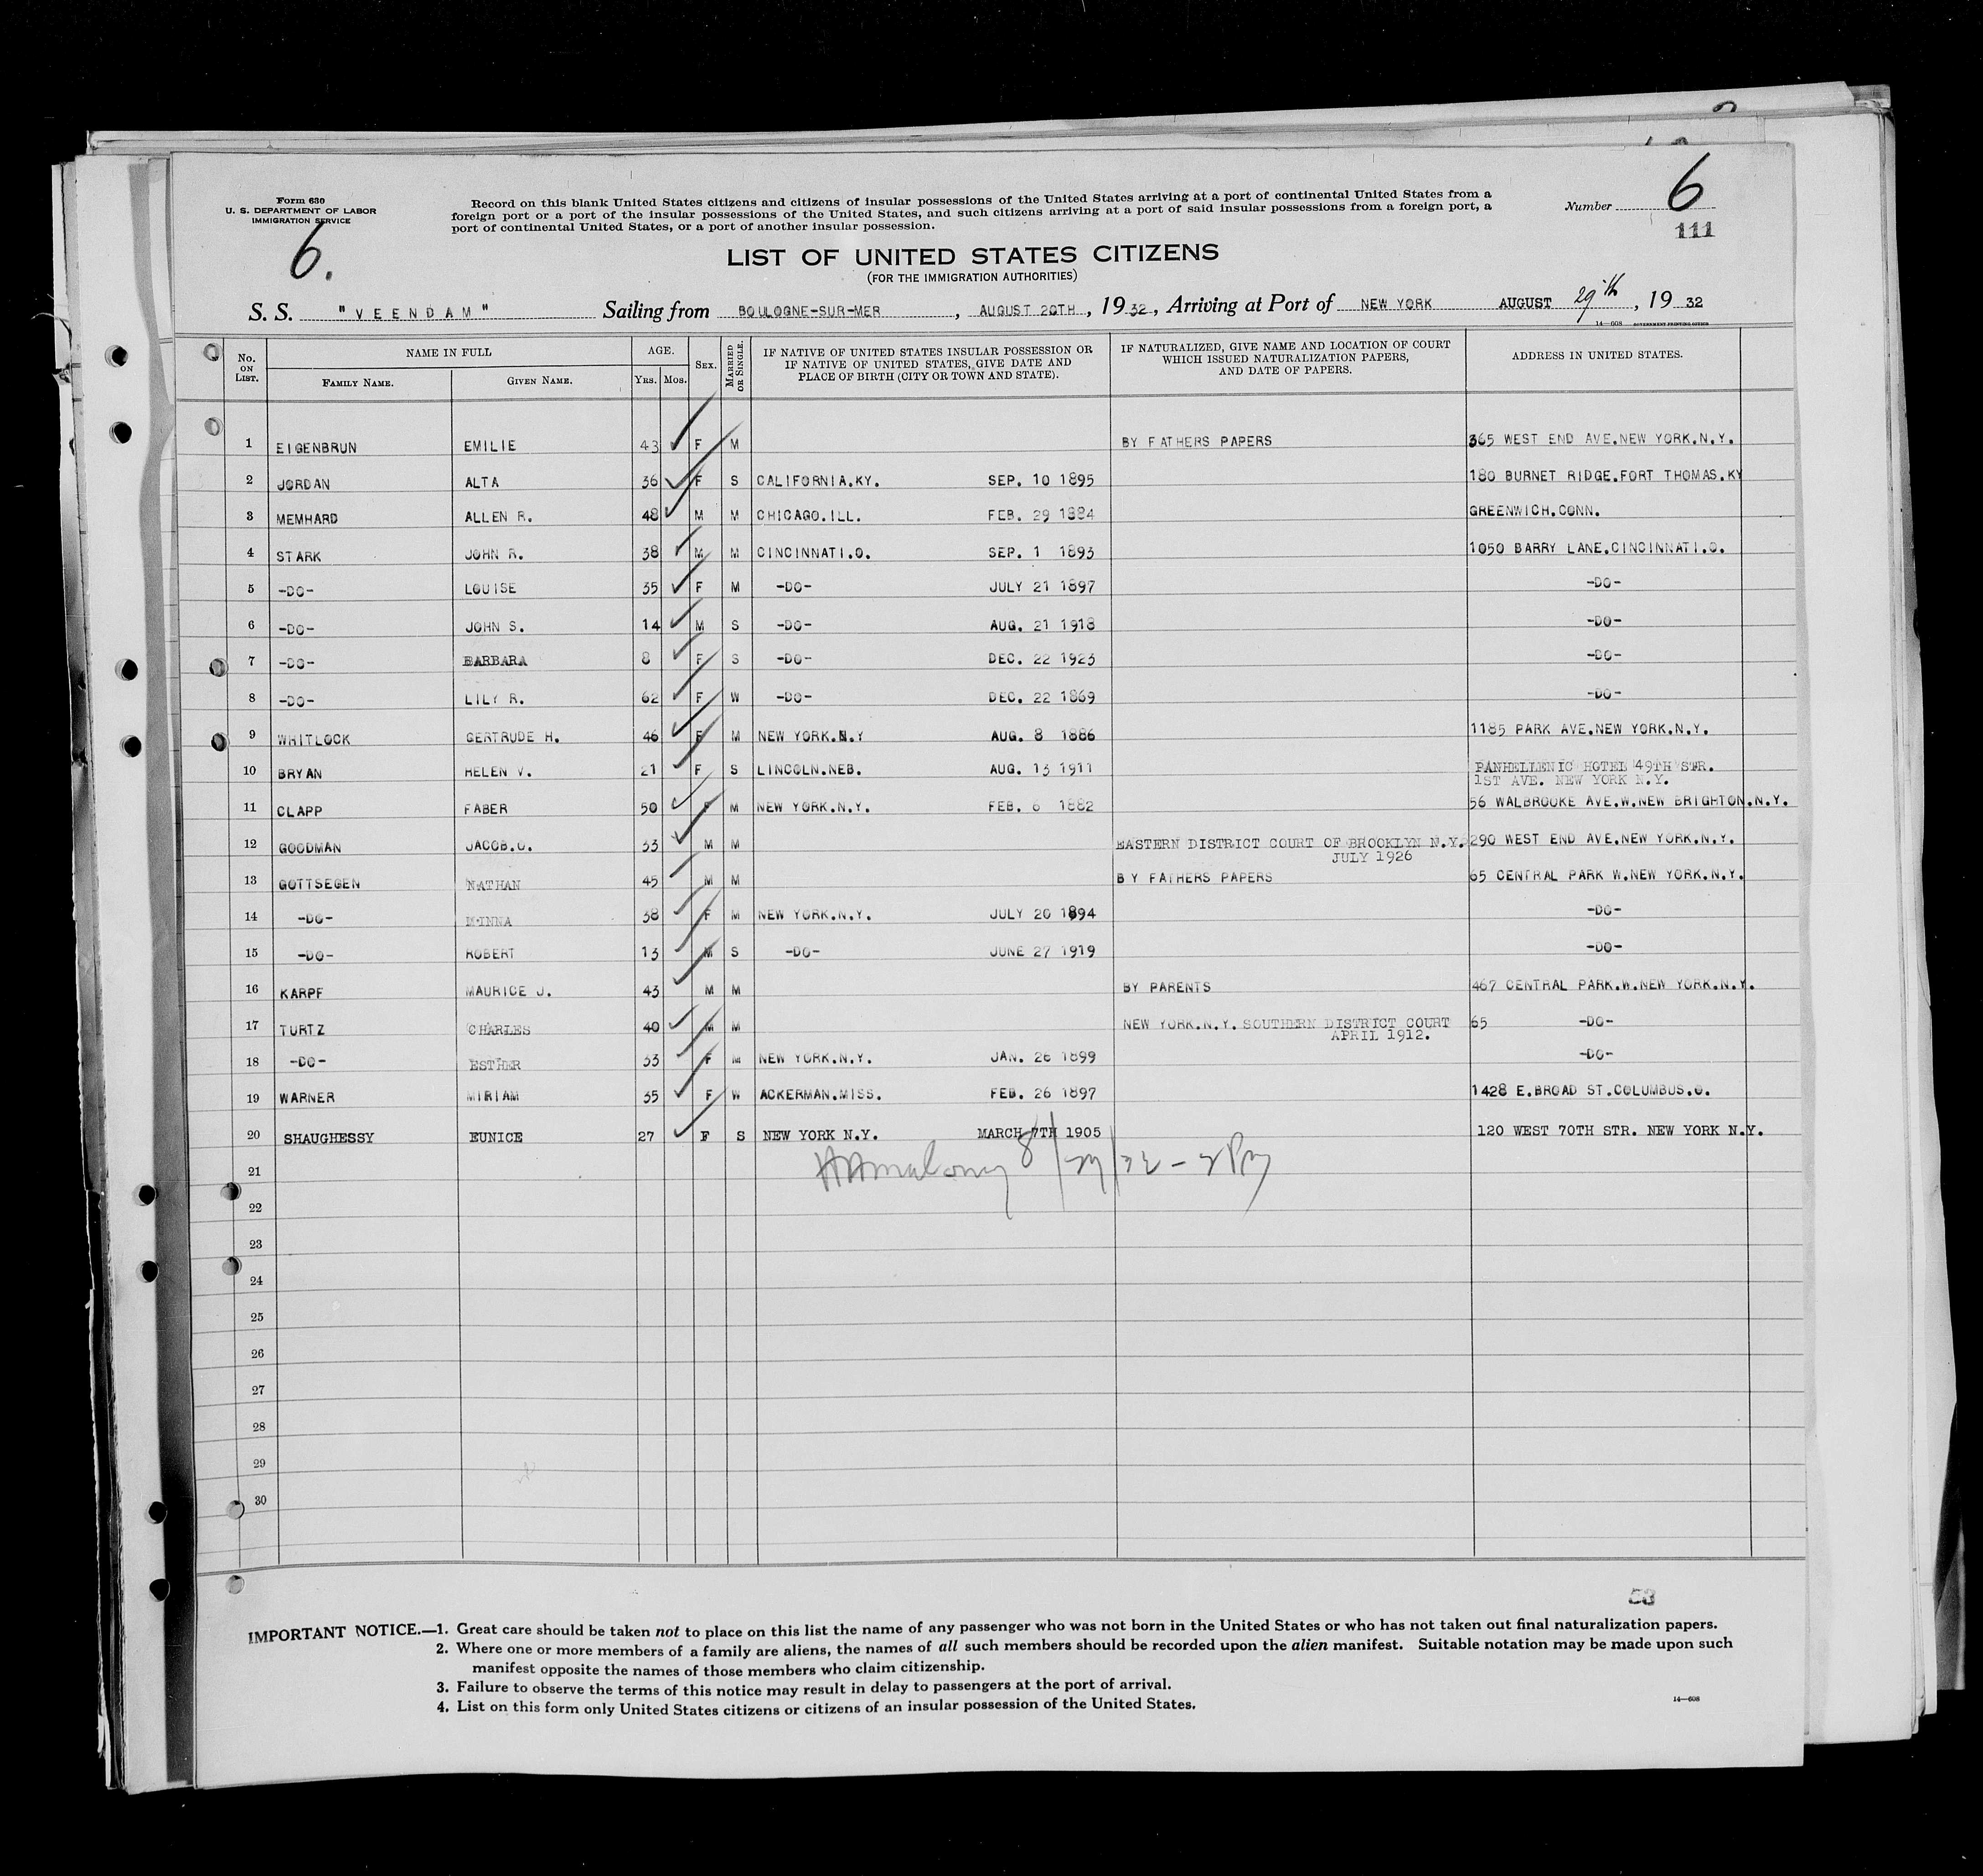 Form 630
U. S. DEPARTMENT OF LABOR
IMMIGRATION SERVICE
6.
Record on this blank United States citizens and citizens of insular possessions of the United States arriving at a port of continental United States from a
foreign port or a port of the insular possessions of the United States, and such citizens arriving at a port of said insular possessions from a foreign port, a
port of continental United States, or a port of another insular possession.
Number 6
111
LIST OF UNITED STATES CITIZENS
(FOR THE IMMIGRATION AUTHORITIES)
S. S. "VEENDAM" Sailing from BOULOGNE-SUR-MER, AUGUST 20TH, 1932, Arriving at Port of NEW YORK AUGUST 29th, 1932
14—608 GOVERNMENT PRINTING OFFICE
No. ON LIST. NAME IN FULL AGE. SEX. MARRIED OR SINGLE. IF NATIVE OF UNITED STATES INSULAR POSSESSION OR IF NATIVE OF UNITED STATES, GIVE DATE AND PLACE OF BIRTH (CITY OR TOWN AND STATE). IF NATURALIZED, GIVE NAME AND LOCATION OF COURT WHICH ISSUED NATURALIZATION PAPERS, AND DATE OF PAPERS. ADDRESS IN UNITED STATES.
FAMILY NAME. GIVEN NAME. YRS. MOS.
1 EIGENBRUN EMILIE 43 F M BY FATHERS PAPERS 365 WEST END AVE.NEW YORK.N.Y.
2 JORDAN ALTA 36 F S CALIFORNIA.KY. SEP. 10 1895 180 BURNET RIDGE.FORT THOMAS.KY
3 MEMHARD ALLEN R. 48 M M CHICAGO.ILL. FEB. 29 1884 GREENWICH.CONN.
4 STARK JOHN R. 38 M M CINCINNATI.O. SEP. 1 1893 1050 BARRY LANE.CINCINNATI.O.
5 -DO- LOUISE 35 F M -DO- JULY 21 1897 -DO-
6 -DO- JOHN S. 14 M S -DO- AUG. 21 1918 -DO-
7 -DO- BARBARA 8 F S -DO- DEC. 22 1923 -DO-
8 -DO- LILY R. 62 F W -DO- DEC. 22 1869 -DO-
9 WHITLOCK GERTRUDE H. 46 F M NEW YORK.N.Y AUG. 8 1886 1185 PARK AVE.NEW YORK.N.Y.
10 BRYAN HELEN V. 21 F S LINCOLN.NEB. AUG. 13 1911 PANHELLENIC HOTEL 49TH STR.
1ST AVE. NEW YORK N.Y.
11 CLAPP FABER 50 F M NEW YORK.N.Y. FEB. 6 1882 56 WALBROOKE AVE.W.NEW BRIGHTON.N.Y.
12 GOODMAN JACOB.J. 33 M M EASTERN DISTRICT COURT OF BROOKLYN N.Y. 290 WEST END AVE.NEW YORK.N.Y.
JULY 1926
13 GOTTSEGEN NATHAN 45 M M BY FATHERS PAPERS 65 CENTRAL PARK W.NEW YORK.N.Y.
14 -DO- MINNA 38 F M NEW YORK.N.Y. JULY 20 1894 -DO-
15 -DO- ROBERT 13 M S -DO- JUNE 27 1919 -DO-
16 KARPF MAURICE J. 43 M M BY PARENTS 467 CENTRAL PARK.W.NEW YORK.N.Y.
17 TURTZ CHARLES 40 M M NEW YORK.N.Y. SOUTHERN DISTRICT COURT 65 -DO-
APRIL 1912.
18 -DO- ESTHER 33 F M NEW YORK.N.Y. JAN. 26 1899 -DO-
19 WARNER MIRIAM 35 F W ACKERMAN.MISS. FEB. 26 1897 1428 E.BROAD ST.COLUMBUS.O.
20 SHAUGHESSY EUNICE 27 F S NEW YORK N.Y. MARCH 7TH 1905 120 WEST 70TH STR. NEW YORK N.Y.
21
22
23
24
25
26
27
28
29
30
53
IMPORTANT NOTICE.—1. Great care should be taken not to place on this list the name of any passenger who was not born in the United States or who has not taken out final naturalization papers.
2. Where one or more members of a family are aliens, the names of all such members should be recorded upon the alien manifest. Suitable notation may be made upon such
manifest opposite the names of those members who claim citizenship.
3. Failure to observe the terms of this notice may result in delay to passengers at the port of arrival.
4. List on this form only United States citizens or citizens of an insular possession of the United States.
14—608